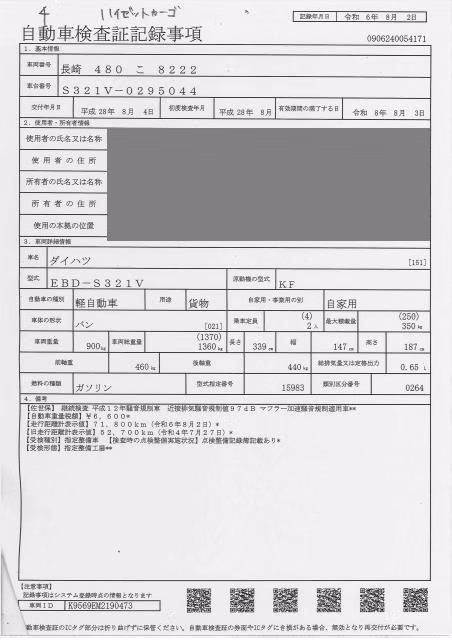 4 ハイゼットカーゴ
記録年月日 令和 6年 8月 2日
自動車検査証記録事項
0906240054171
1. 基本情報
車両番号 長崎 480 こ 8222
車台番号 S321V-0295044
交付年月日 平成 28年 8月 4日 初度検査年月 平成 28年 8月 有効期間の満了する日 令和 8年 8月 3日
2. 使用者・所有者情報
使用者の氏名又は名称
使用者の住所
所有者の氏名又は名称
所有者の住所
使用の本拠の位置
3. 車両詳細情報
車名 ダイハツ [151]
型式 EBD-S321V 原動機の型式 KF
自動車の種別 軽自動車 用途 貨物 自家用・事業用の別 自家用
車体の形状 バン [021] 乗車定員 (4) 2人 最大積載量 (250) 350kg
車両重量 900kg 車両総重量 (1370) 1360kg 長さ 339cm 幅 147cm 高さ 187cm
前軸重 460kg 後軸重 440kg 総排気量又は定格出力 0.65 L
燃料の種類 ガソリン 型式指定番号 15983 類別区分番号 0264
4. 備考
【佐世保】 継続検査 平成12年騒音規制車 近接排気騒音規制値97dB マフラー加速騒音規制適用車**
【自動車重量税額】¥6,600*
【走行距離計表示値】71,800km(令和6年8月2日)*
【旧走行距離計表示値】52,700km(令和4年7月27日)*
【受検種別】指定整備車 【検査時の点検整備実施状況】点検整備記録簿記載あり*
【受検形態】指定整備工場**
【注意事項】
記録事項はシステム登録時点の情報となります
車両ID K9569EM2190473
動車検査証のICタグ部分は折り曲げずに保管ください。自動車検査証の券面やICタグに合損がある場合、無効となり再交付が必要です。